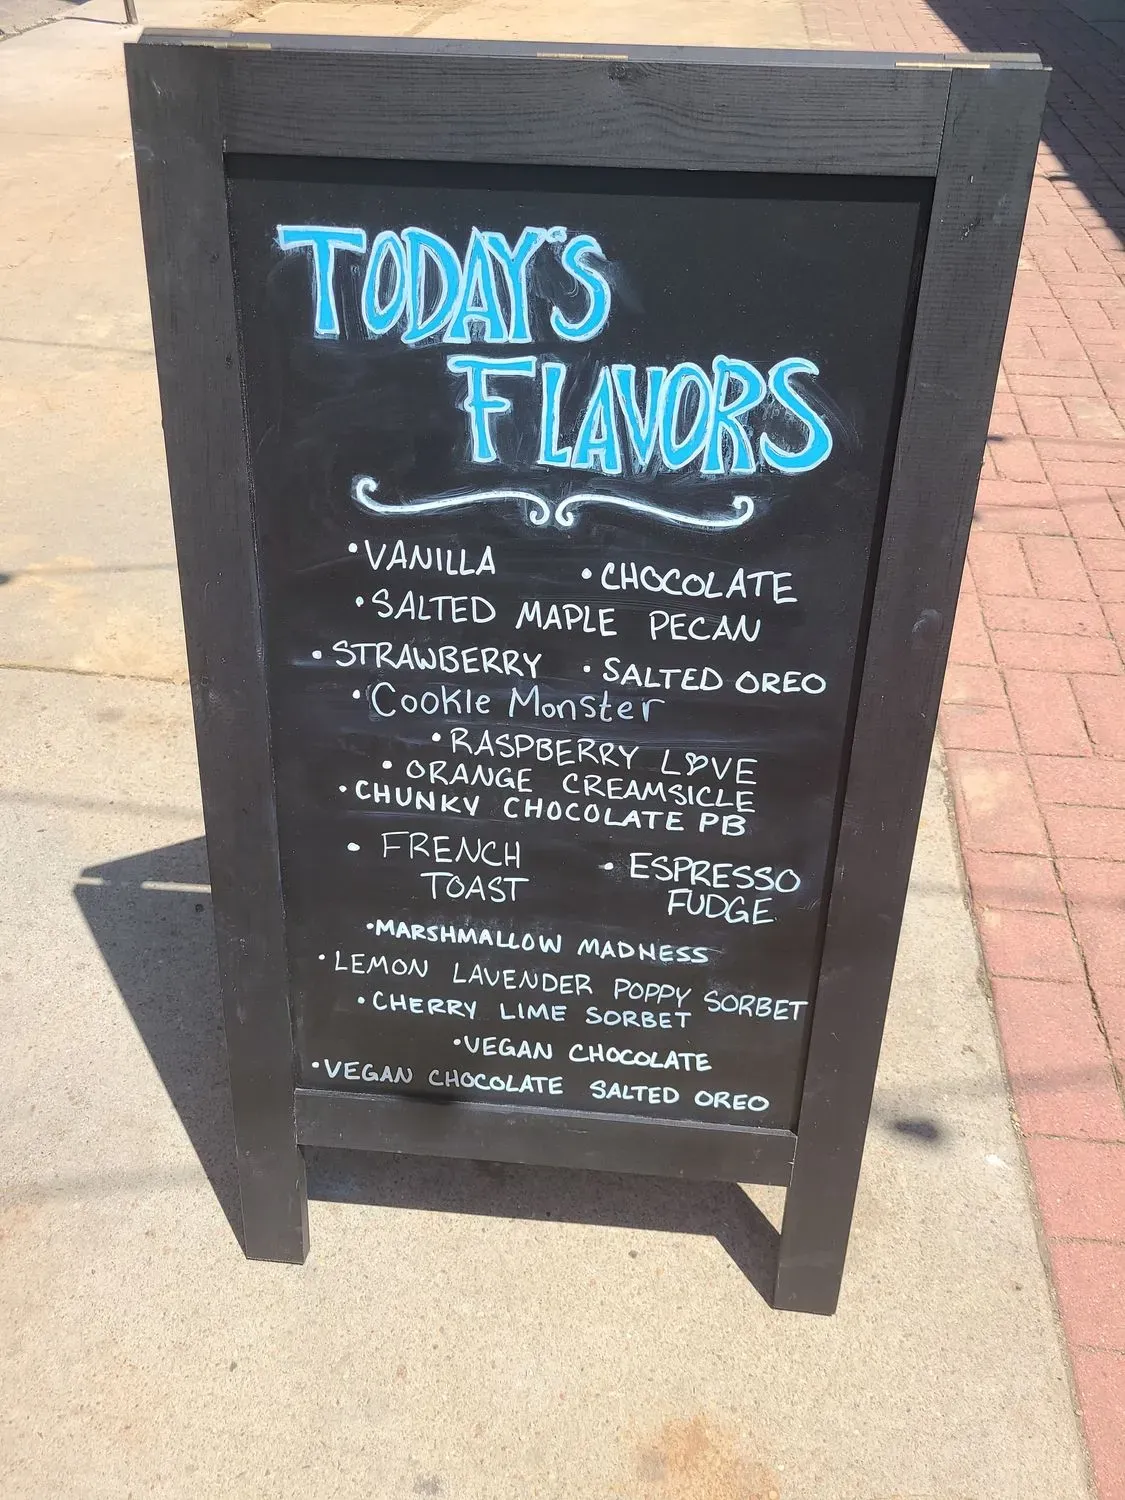 TODAY'S
FLAVORS
• VANILLA • CHOCOLATE
• SALTED MAPLE PECAN
• STRAWBERRY • SALTED OREO
• Cookie Monster
• RASPBERRY LOVE
• ORANGE CREAMSICLE
• CHUNKY CHOCOLATE PB
• FRENCH
TOAST
• ESPRESSO
FUDGE
• MARSHMALLOW MADNESS
• LEMON LAVENDER POPPY SORBET
• CHERRY LIME SORBET
• VEGAN CHOCOLATE
• VEGAN CHOCOLATE SALTED OREO